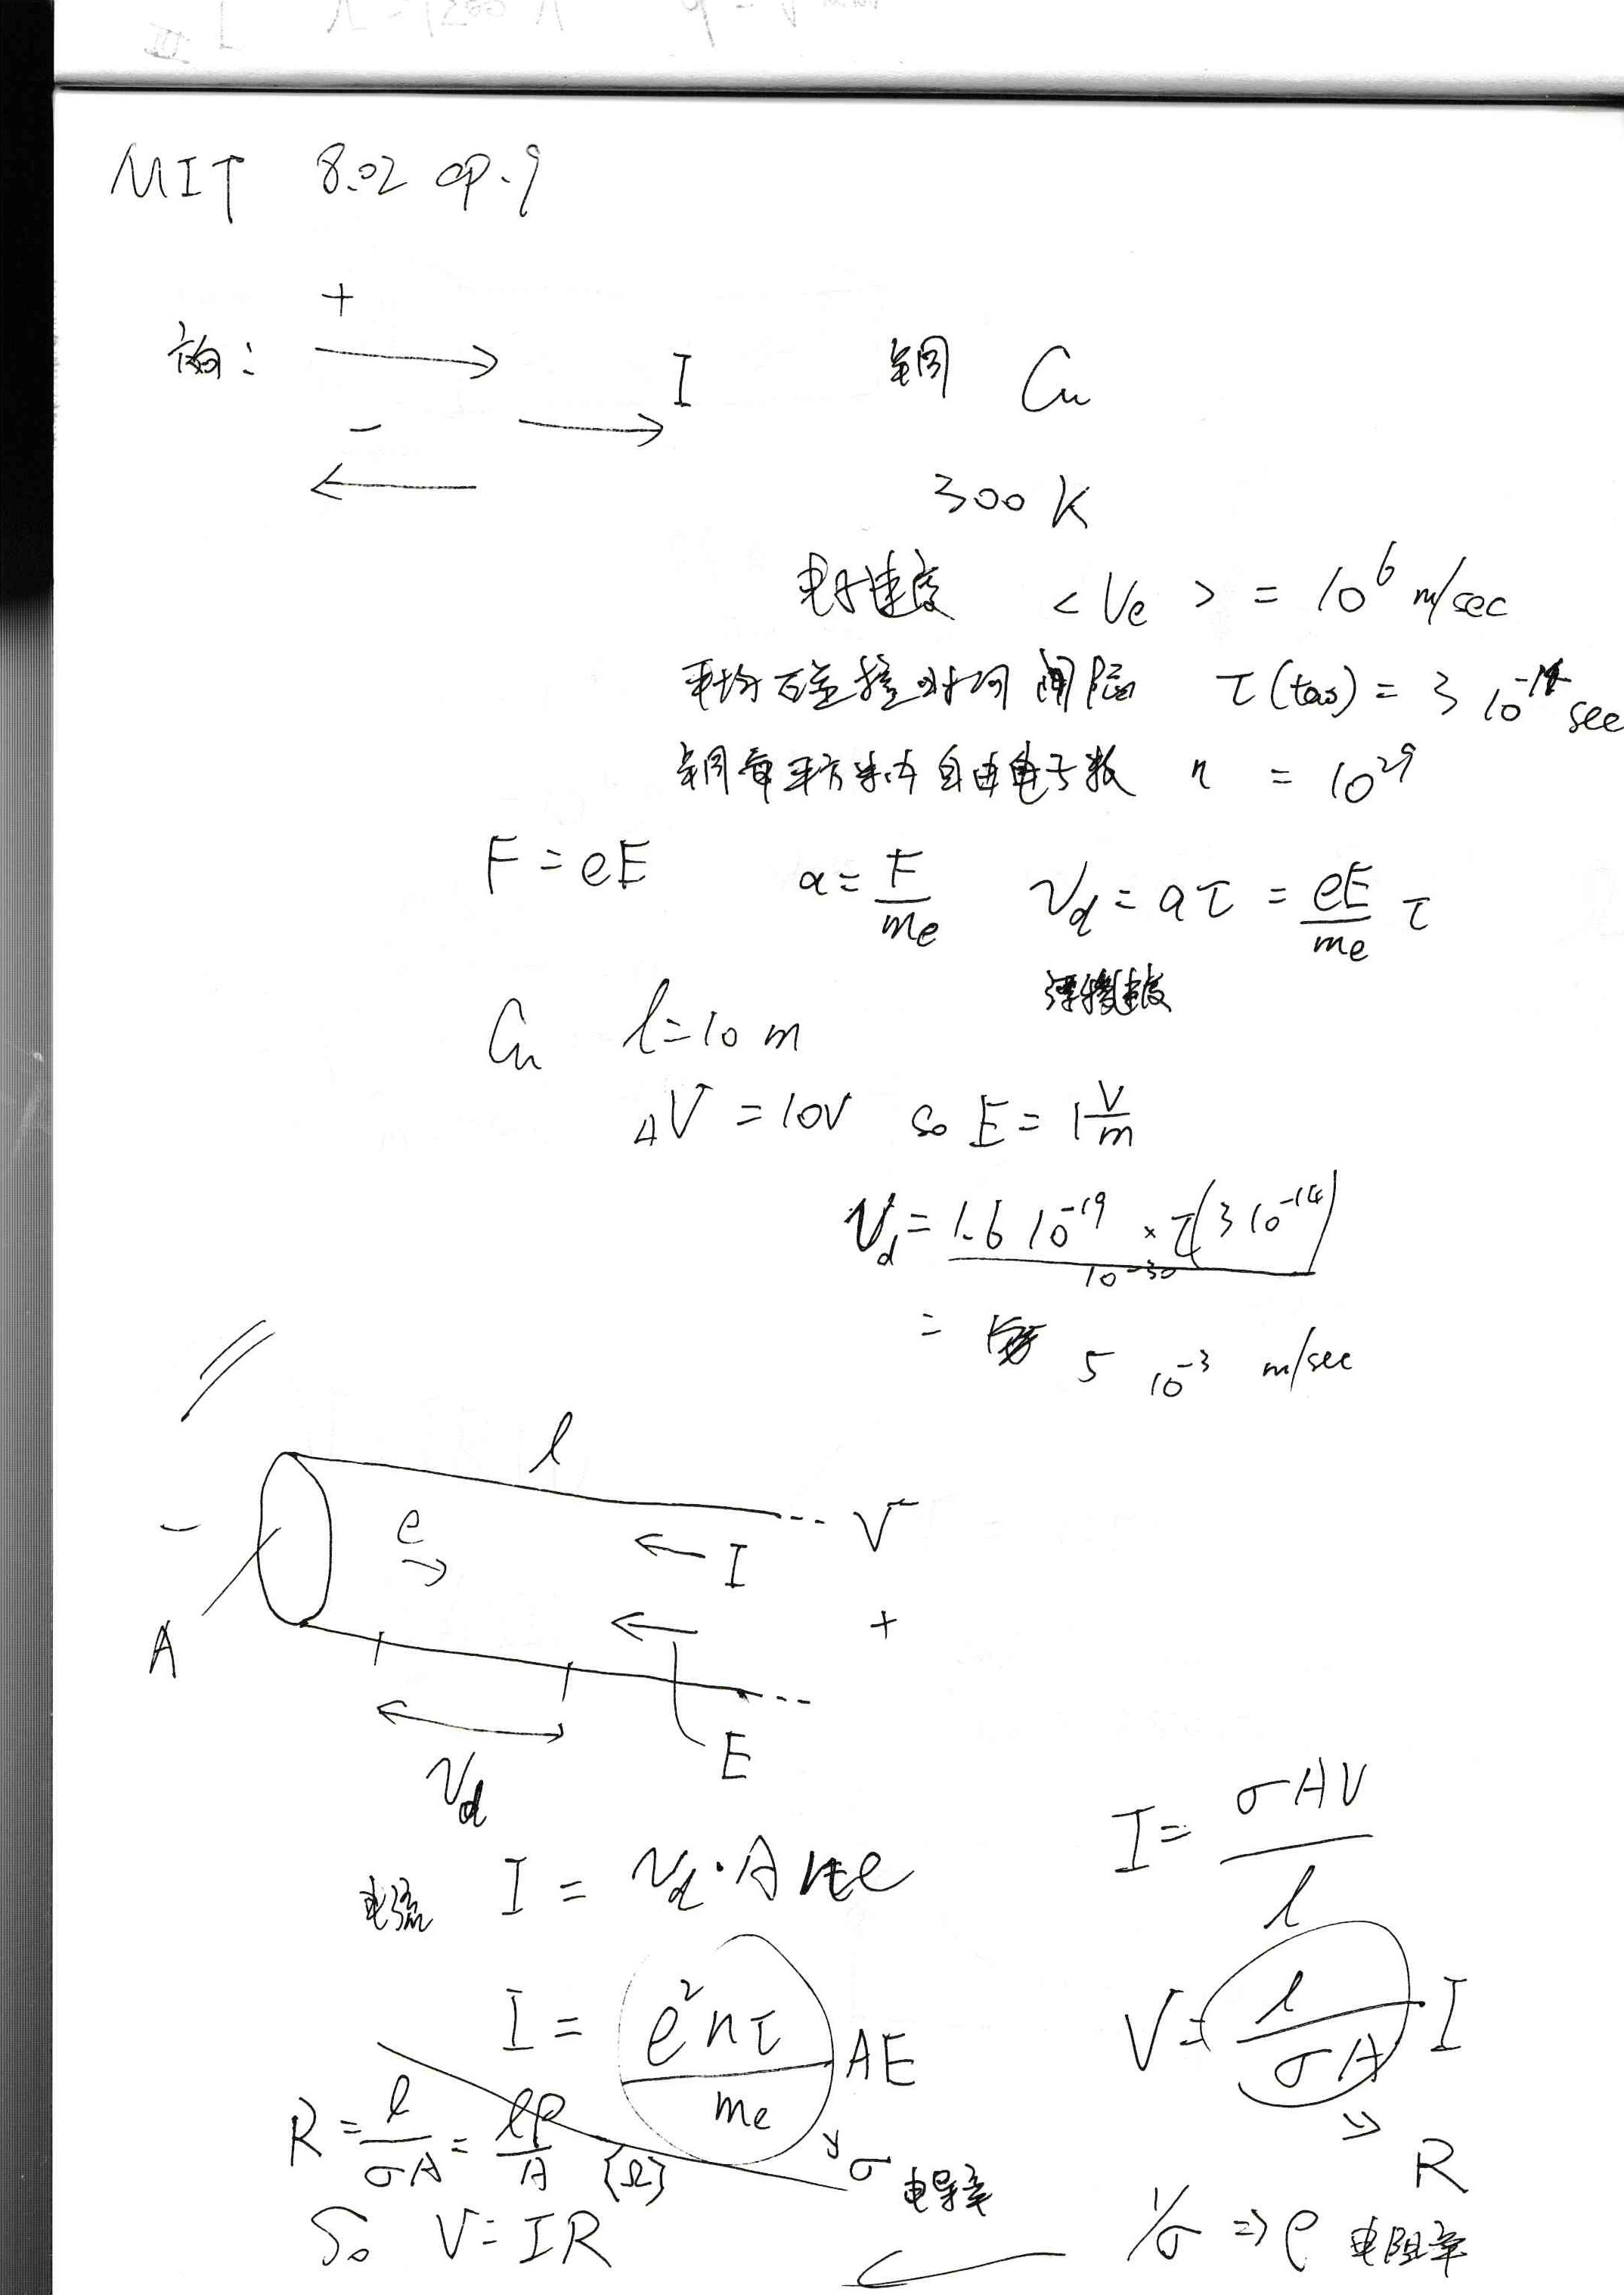 MIT 8.02 ep.9
方向: +
I
-
铜 Cu
300 K
电子速度 <Ve> = 10⁶ m/sec
平均碰撞时间间隔 τ(tao) = 3 10⁻¹⁴ sec
铜每平方米内自由电子数 n = 10²⁹
F = eE a = F/me Vd = aτ = eE/me τ
漂移速度
Cu l = 10 m
ΔV = 10V so E = 1 V/m
Vd = 1.6 10⁻¹⁹ × τ(3 10⁻¹⁴) / 10⁻³⁰
= 5 10⁻³ m/sec
l
- e I V
A E +
Vd
电流 I = Vd·A n e
I = e²nτ/me AE
σ 电导率
I = σAV/l
V = l/σA I
R
1/σ => ρ 电阻率
R = l/σA = lρ/A {Ω}
So V = IR